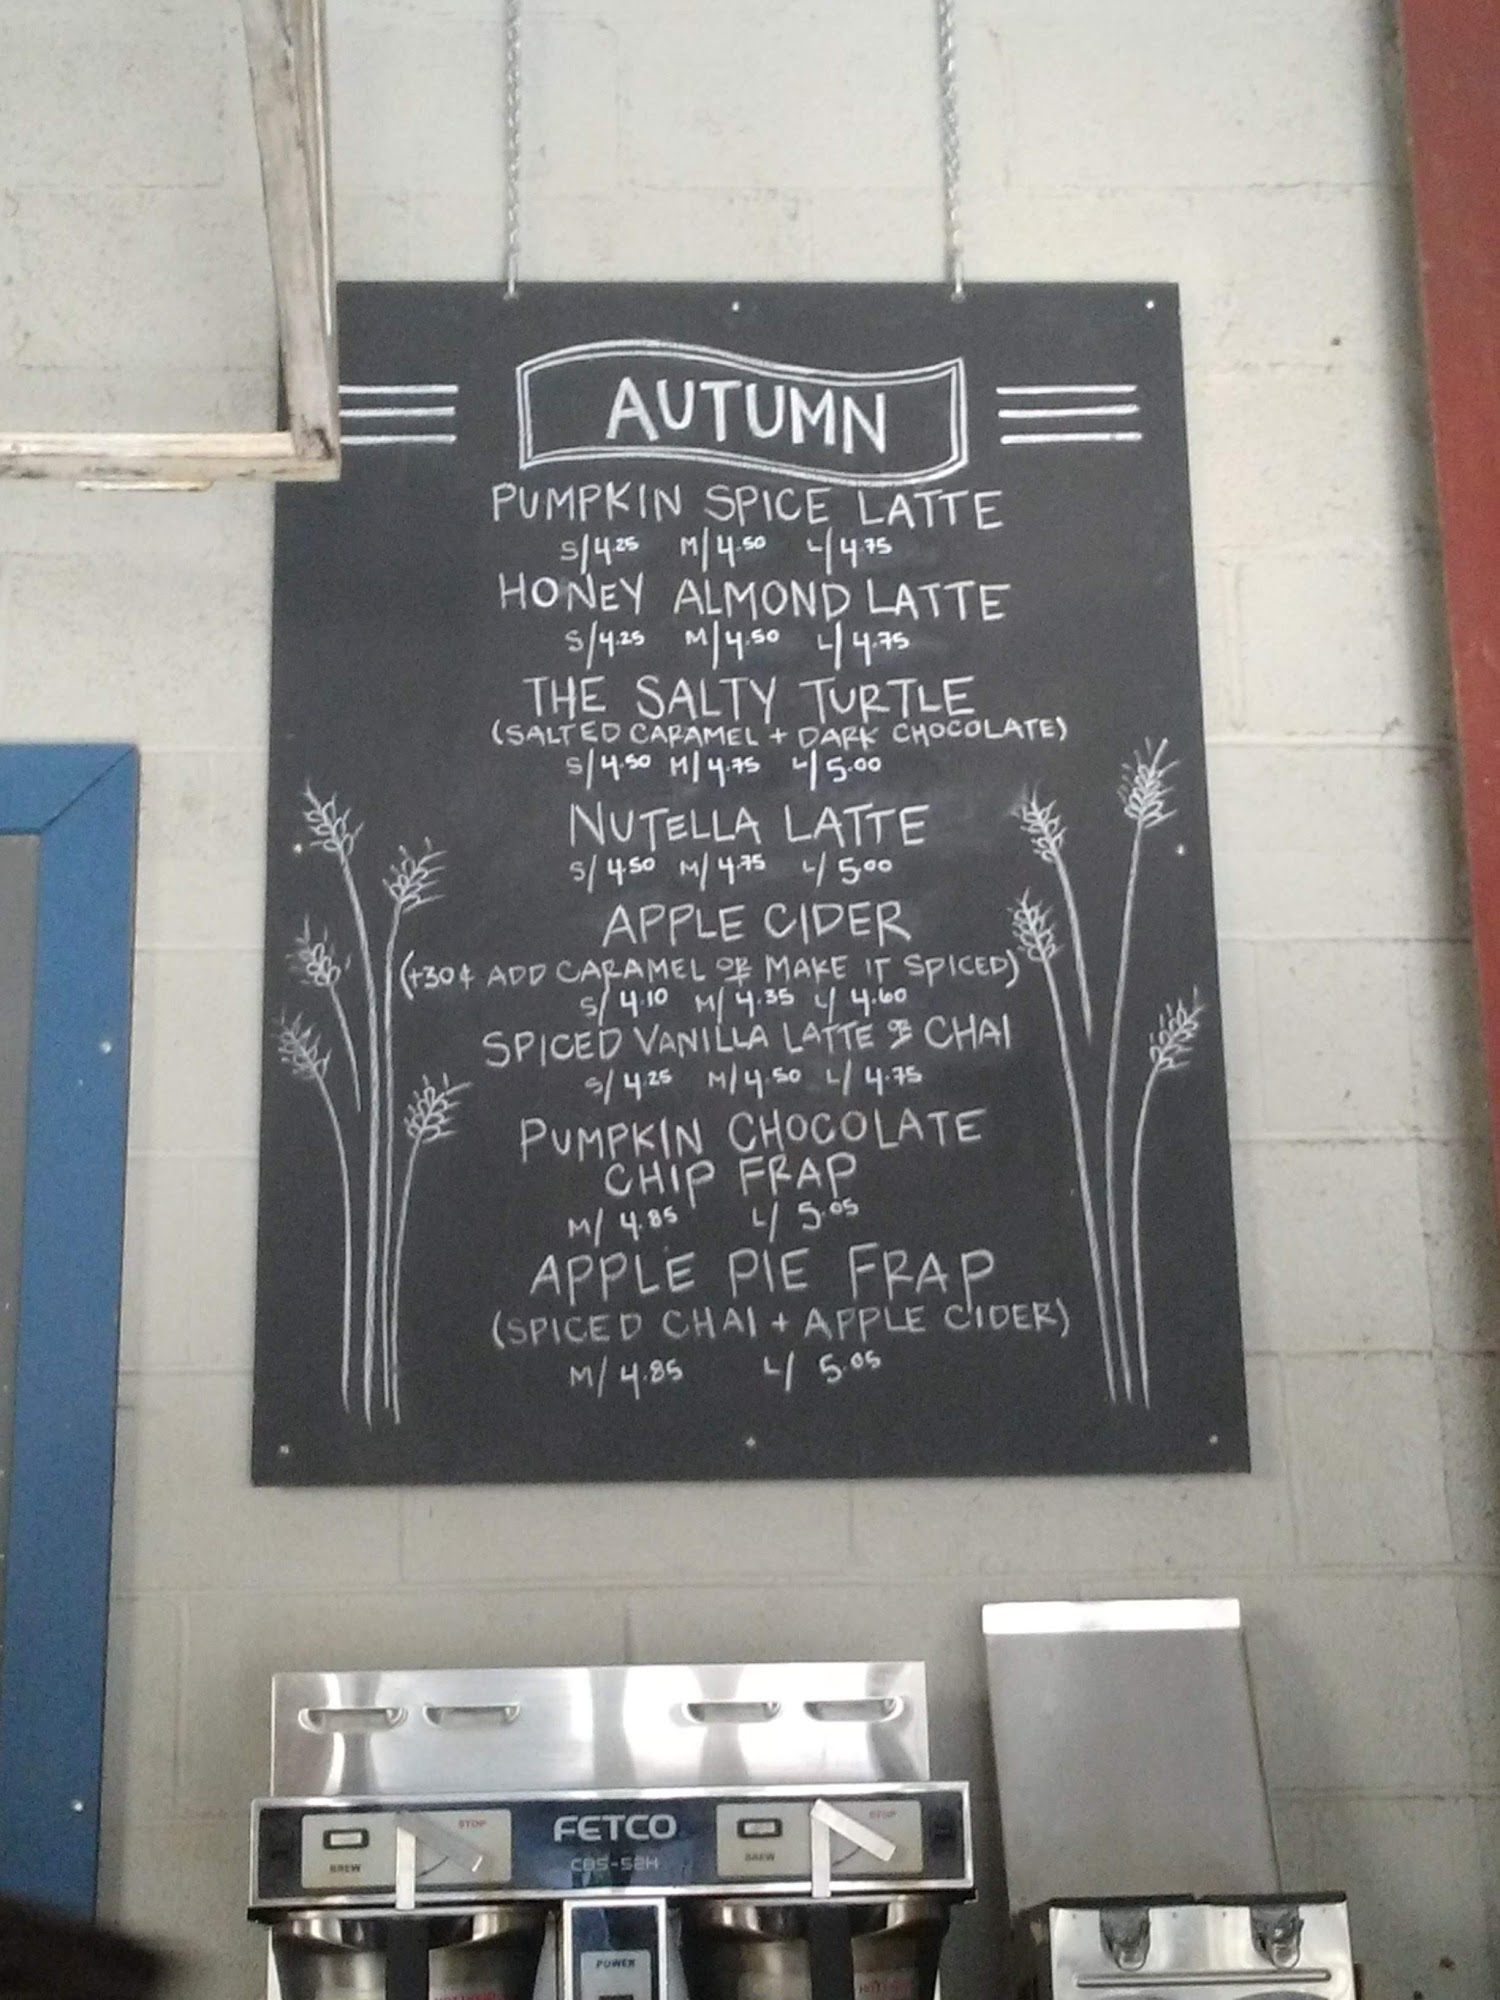 AUTUMN
PUMPKIN SPICE LATTE
S/4.25 M/4.50 L/4.75
HONEY ALMOND LATTE
S/4.25 M/4.50 L/4.75
THE SALTY TURTLE
(SALTED CARAMEL + DARK CHOCOLATE)
S/4.50 M/4.75 L/5.00
NUTELLA LATTE
S/4.50 M/4.75 L/5.00
APPLE CIDER
(+30¢ ADD CARAMEL OR MAKE IT SPICED)
S/4.10 M/4.35 L/4.60
SPICED VANILLA LATTE OR CHAI
S/4.25 M/4.50 L/4.75
PUMPKIN CHOCOLATE
CHIP FRAP
M/4.85 L/5.05
APPLE PIE FRAP
(SPICED CHAI + APPLE CIDER)
M/4.85 L/5.05
STOP FETCO STOP
BREW CBS-52H BREW
POWER